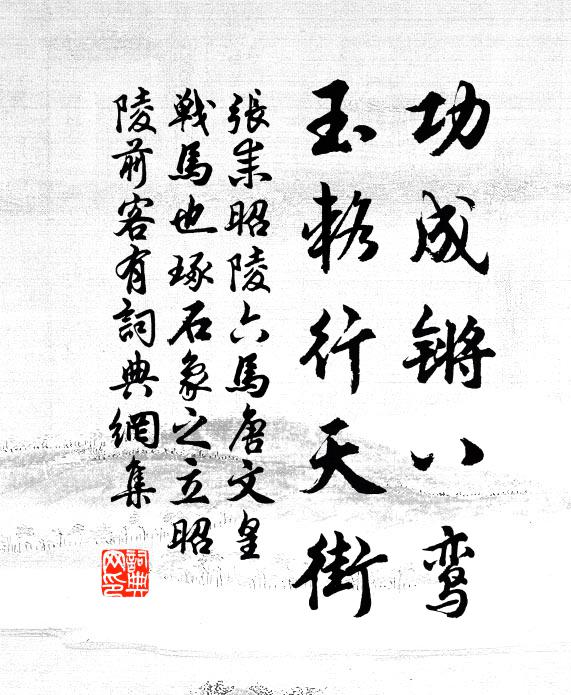 功成锵八鸾
玉輅行天街
張耒昭陵六馬唐文皇
戦馬也琢石象之立昭
陵前客有詞典網集
詞典网印